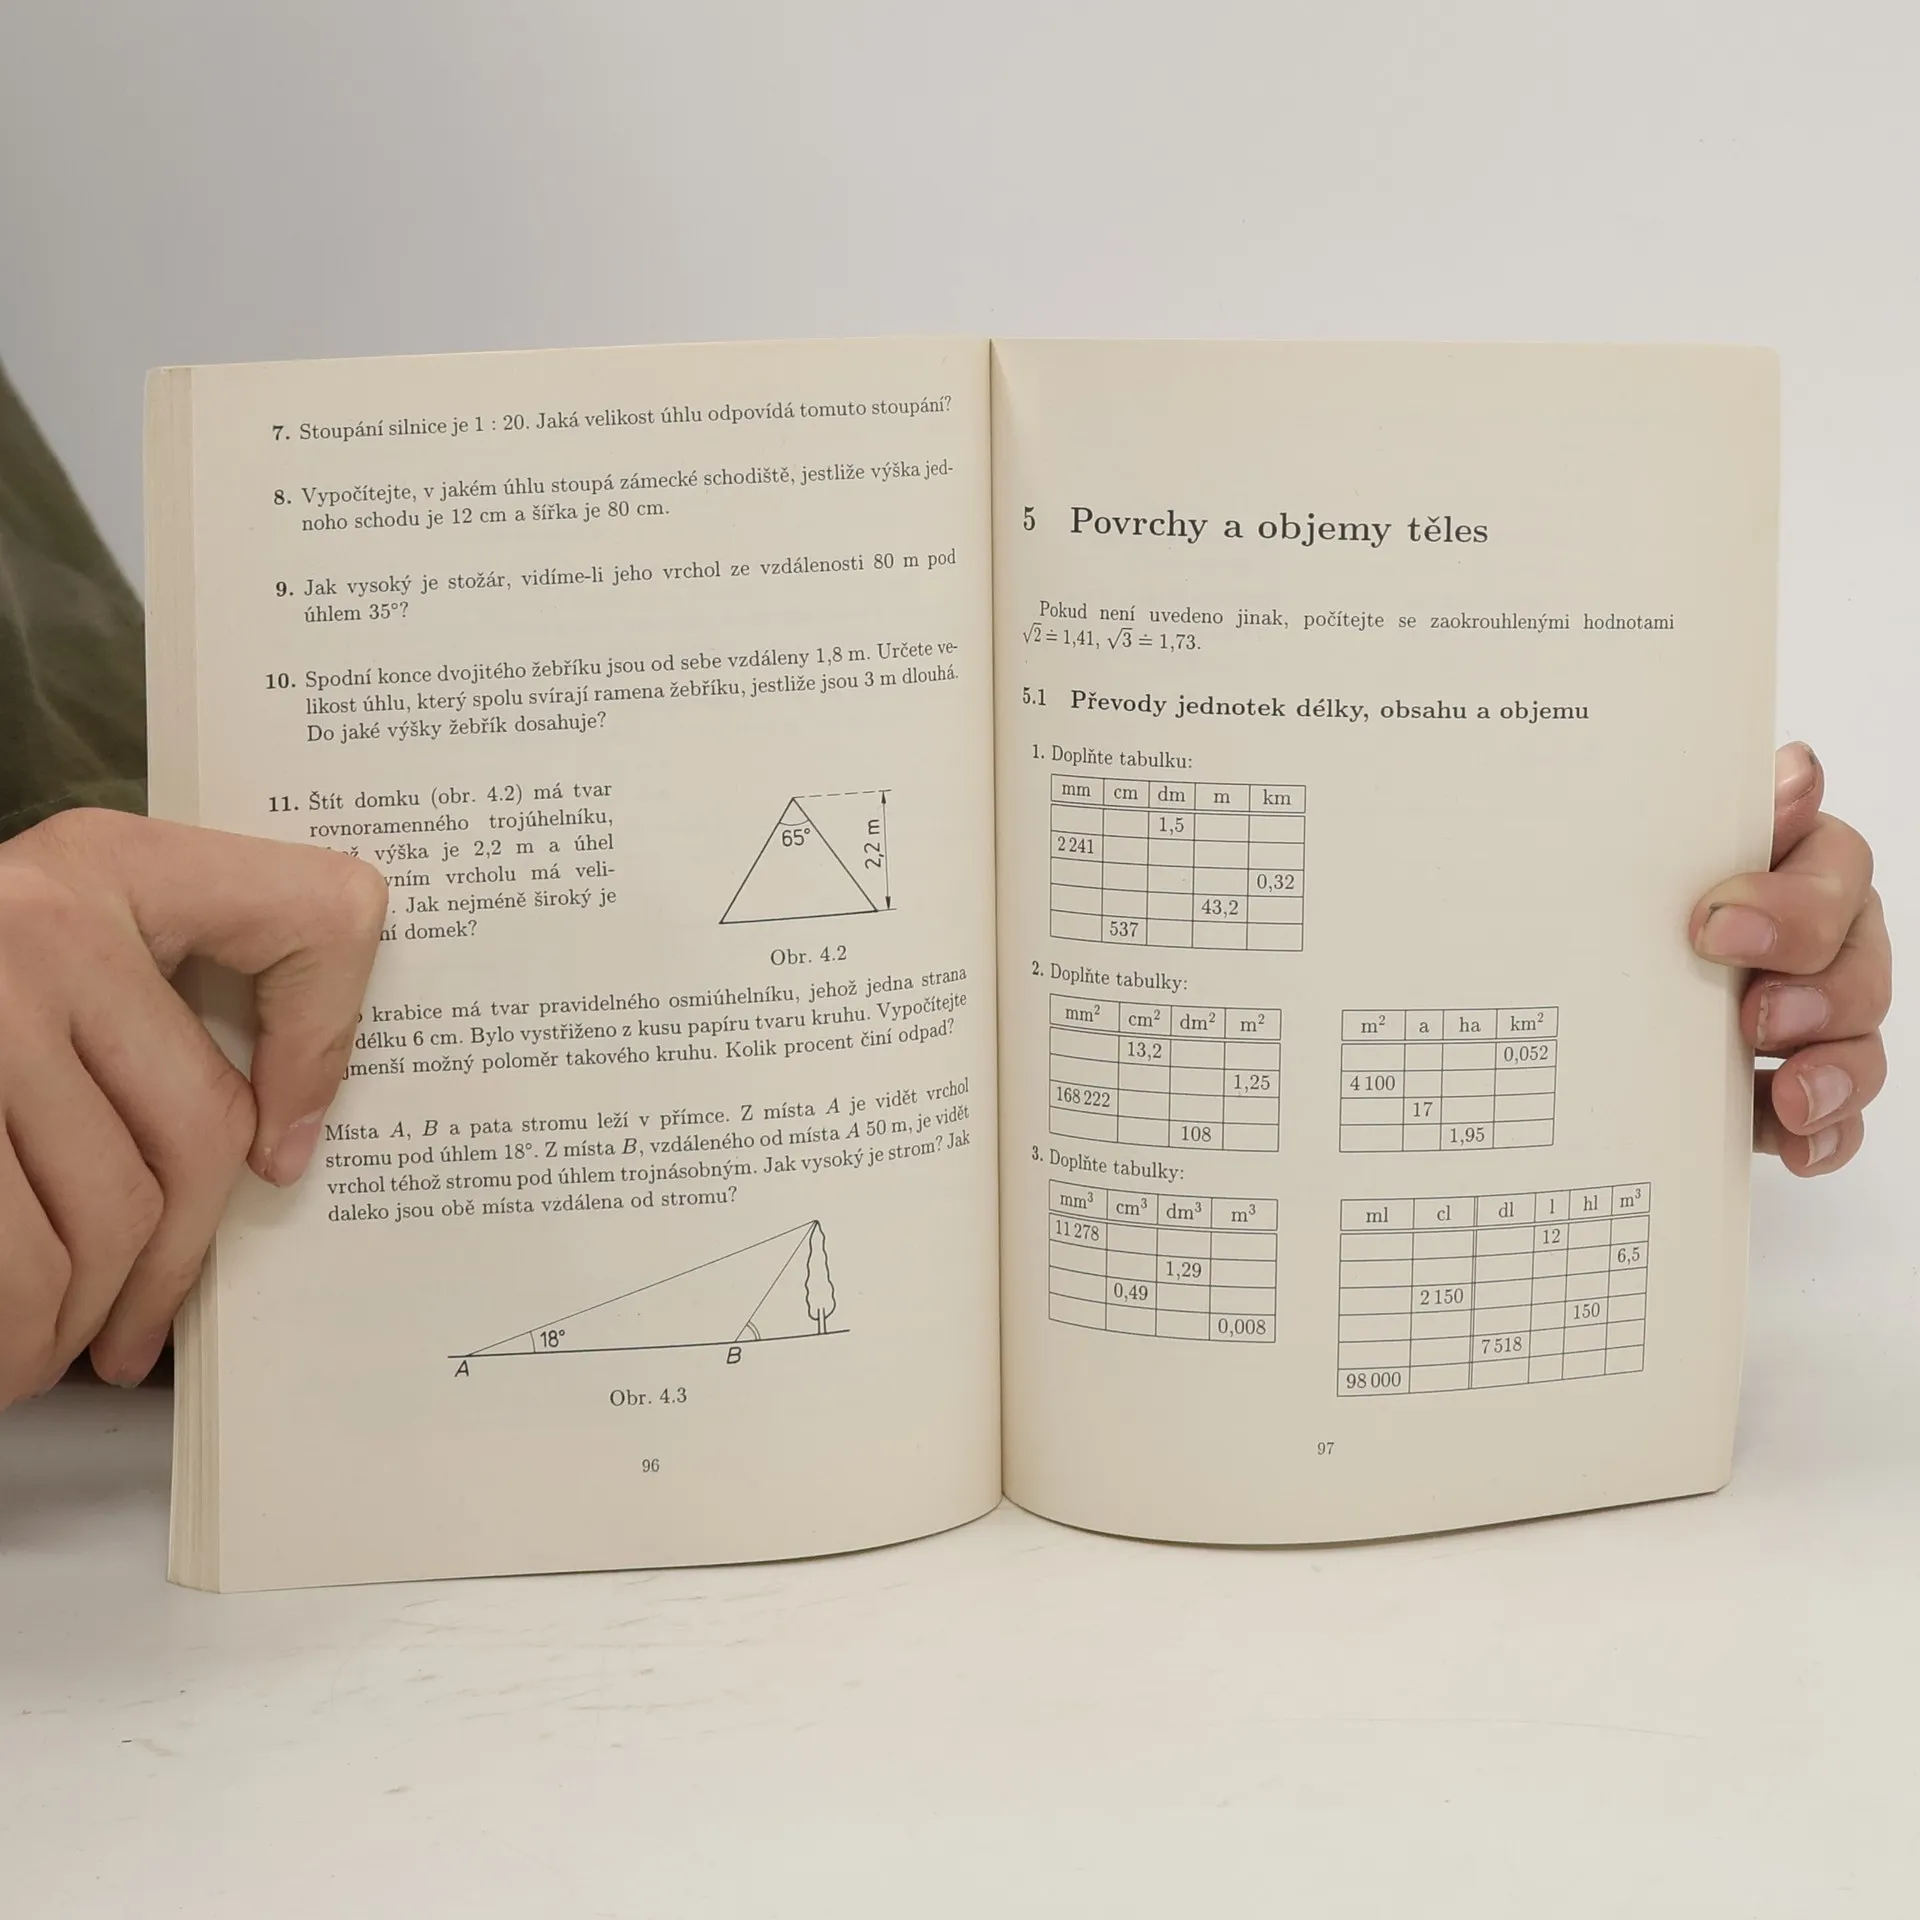 7. Stoupání silnice je 1 : 20. Jaká velikost úhlu odpovídá tomuto stoupání?
8. Vypočítejte, v jakém úhlu stoupá zámecké schodiště, jestliže výška jed-
noho schodu je 12 cm a šířka je 80 cm.
9. Jak vysoký je stožár, vidíme-li jeho vrchol ze vzdálenosti 80 m pod
úhlem 35°?
10. Spodní konce dvojitého žebříku jsou od sebe vzdáleny 1,8 m. Určete ve-
likost úhlu, který spolu svírají ramena žebříku, jestliže jsou 3 m dlouhá.
Do jaké výšky žebřík dosahuje?
11. Štít domku (obr. 4.2) má tvar
rovnoramenného trojúhelníku,
výška je 2,2 m a úhel
vrcholu má veli-
. Jak nejméně široký je
domek?
65°
2,2 m
Obr. 4.2
krabice má tvar pravidelného osmiúhelníku, jehož jedna strana
délku 6 cm. Bylo vystřiženo z kusu papíru tvaru kruhu. Vypočítejte
jmenší možný poloměr takového kruhu. Kolik procent činí odpad?
Místa A, B a pata stromu leží v přímce. Z místa A je vidět vrchol
stromu pod úhlem 18°. Z místa B, vzdáleného od místa A 50 m, je vidět
vrchol téhož stromu pod úhlem trojnásobným. Jak vysoký je strom? Jak
daleko jsou obě místa vzdálena od stromu?
18°
A B
Obr. 4.3
96
5 Povrchy a objemy těles
Pokud není uvedeno jinak, počítejte se zaokrouhlenými hodnotami
√2 ≐ 1,41, √3 ≐ 1,73.
5.1 Převody jednotek délky, obsahu a objemu
1. Doplňte tabulku:
mm cm dm m km
1,5
2 241
0,32
43,2
537
2. Doplňte tabulky:
mm² cm² dm² m²
13,2
1,25
168 222
108
m² a ha km²
0,052
4 100
17
1,95
3. Doplňte tabulky:
mm³ cm³ dm³ m³
11 278
1,29
0,49
0,008
ml cl dl l hl m³
12
6,5
2 150
150
7 518
98 000
97